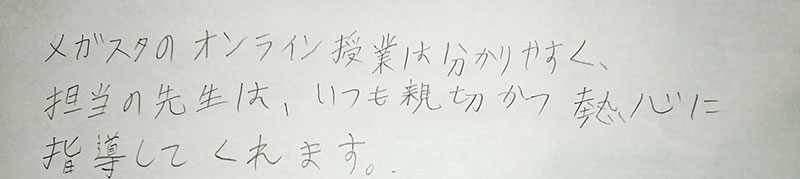 メガスタのオンライン授業は分かりやすく、
担当の先生は、いつも親切かつ熱心に
指導してくれます。